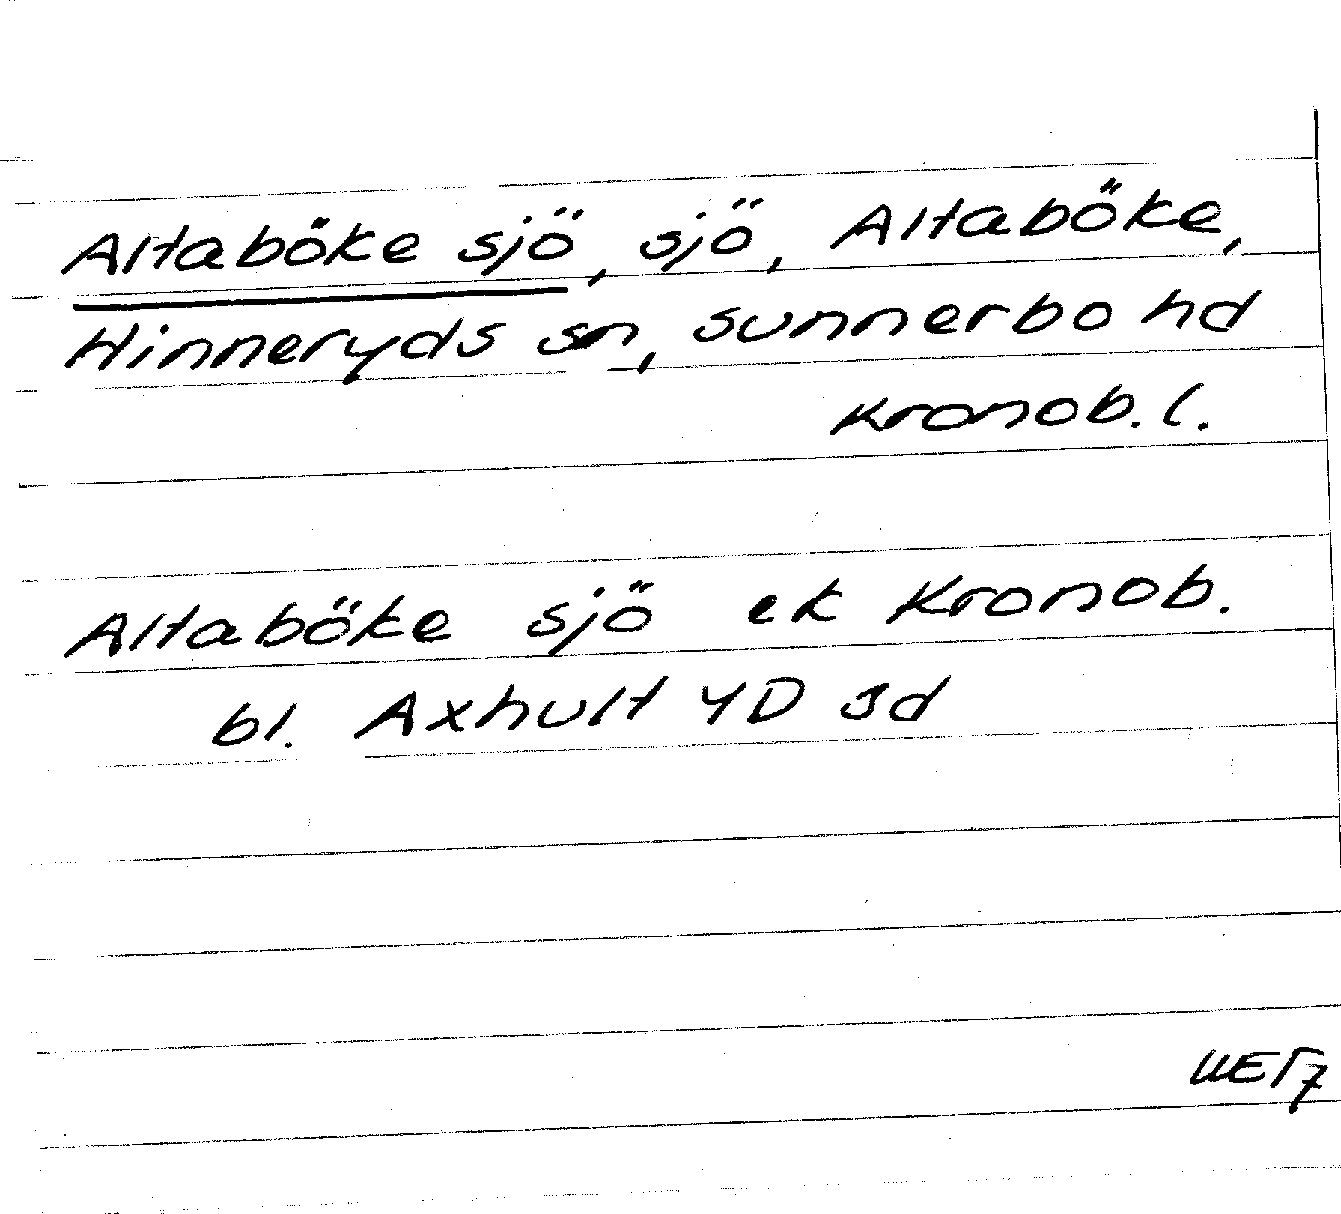 Altaböke sjö, sjö, Altaböke,
Hinneryds sn, Sunnerbo hd
Kronob. l.
Altaböke sjö ek Kronob.
bl. Axhult 4D 3d